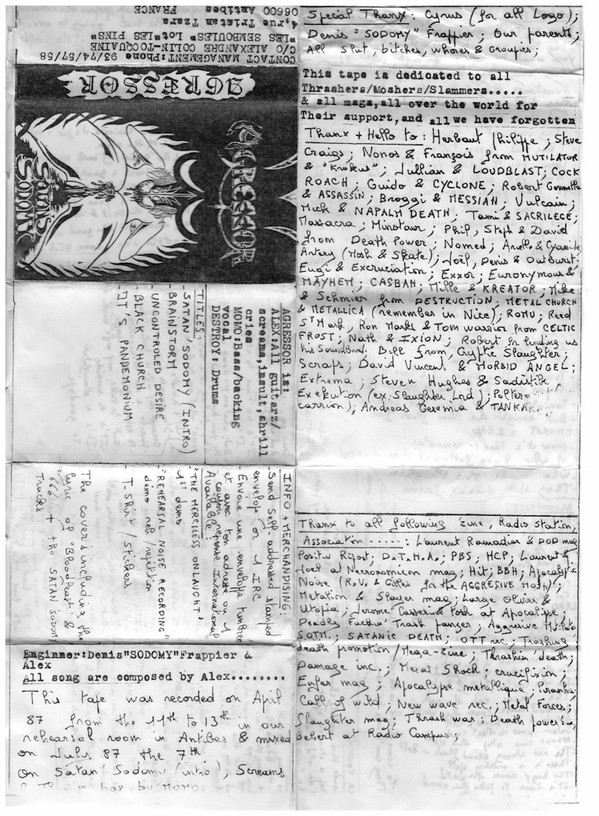 CONTACT MANAGEMENT:Phone 93/74/57/58
C/O ALEXANDRE COLIN-TOCQUAINE
"LES SEMBOULES"Lot"LES PINS"
4,rue Tristan Tzara
06600 Antibes FRANCE
AGRESSOR
AGRESSOR
SATAN'S SODOMY
AGRESSOR is:
ALEX:All guitarz/
screams,insult,shrill
cries
MOMO:Bass/backing
vocal
DESTROY: Drums
TITLES
- SATAN'SODOMY (INTRO)
- BRAINSTORM
- UNCONTROLED DESIRE
- BLACK CHURCH
- IT'S PANDEMONIUM
INFO + MERCHANDISING:
- Send self-addressed stamped
envelop or 1 IRC
- Envoie une enveloppe timbrée
et avec ton adresse ou 1
coupon réponse International
Available:
"THE MERCILESS ONSLAUGHT",
1st demo
"REHEARSAL NOISE RECORDING"
demo not rejection
- T-Shirt Stickers
The cover includin the
lyric of "Bloodfeast &
666" + the SATAN SODOMY
Tracks
Enginner:Denis"SODOMY"Frappier &
Alex
All song are composed by Alex........
This tape was recorded on April
87 from the 11th to 13th in our
rehearsal room in Antibes & mixed
on July 87 the 7th
On Satan'Sodomy (intro), Screams
by MOMO
Special Thanx: Cyrus (for all Logo);
Denis "SODOMY" Frappier; Our parents;
All slut, bitches, whores & groupies;
This tape is dedicated to all
Thrashers/Moshers/Slammers.....
& all mags,all over the world for
Their support,and all we have forgotten
Thanx + Hello to: Herbaut Philippe; Steve
Craigs; Nonos & François from MUTILATOR
& "Krokus"; Jullian & LOUDBLAST; COCK
ROACH; Guido & CYCLONE; Robert
& ASSASSIN; Broggi & MESSIAH; Vulcain;
Mick & NAPALM DEATH; Tami & SACRILEGE;
Massacra; Minotaur; Phil, Steph & David
from Death Power; Nomed;
Antony (Mosh & Skate); Joël, Denis & Outburst;
Eugi & Excruciation; Exxor; Euronymous &
MAYHEM; CASBAH; Mille & KREATOR; Mike
& Schmier from DESTRUCTION; METAL CHURCH
& METALLICA (remember in Nice); ROMU; Reed
St Mark, Ron Marks & Tom warrior from CELTIC
FROST; Nath & IXION; Robert for lending us
his Soundbox. Bill from Cryptic Slaughter;
Scraps; David Vincent & MORBID ANGEL;
Extrema; Steven Hughes & Sadistik
Exekution (ex. Slaughter Lord);
carrion); Andreas Geremia & TANKAR.
Thanx to all following zine, Radio station,
Association.....: Laurent Ramadier & DOD mag
Positiv Ripost; D.T.M.A.; PBS; HCP; Laurent &
Joel at Necronomicon mag; Hit; BBH; Apocalyptic
Noise (R.V. & Gilles for the AGGRESIVE MOSH);
Metalion & Slayer mag; Large Olivier &
Utopia; Jerome at Apocalipse,
Deadly Fuckin' Trash fanger; Aggresive
SOTM.; SATANIC DEATH; OTT rec; Trashing
death promotion / Mega-zine; Thrashin'death;
Damage inc.; Metal Shock; crucifixion;
Enfer mag; Apocalypse metallique; Piranha;
Call of wild; New wave rec.; Metal Forces;
Slaughter mag; Thrash war; Death power inc,
behert at Radio Campus;